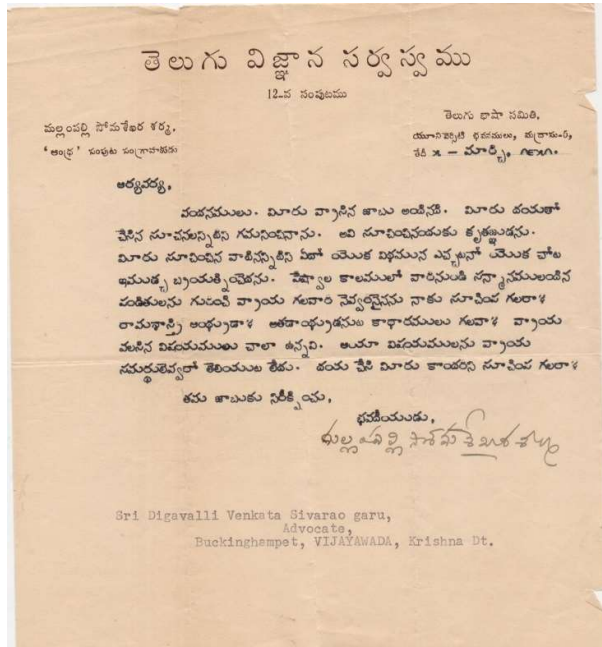 తెలుగు విజ్ఞాన సర్వస్వము
12-వ సంపుటము
మల్లంపల్లి సోమశేఖర శర్మ,
తెలుగు భాషా సమితి,
'ఆంధ్ర' సంపుట సంగ్రాహకుడు
యూనివర్సిటీ భవనములు, మద్రాసు-5,
తేదీ ౫ - మార్చి,
ఆర్యవర్యా,
వందనములు. మీరు వ్రాసిన జాబు అందినది. మీరు దయతో
చేసిన సూచనలన్నిటిని గమనించినాను. అవి సూచించినందుకు కృతజ్ఞుడను.
మీరు సూచించిన వాటినన్నిటిని ఏదో యొక విధమున ఎచ్చటనో యొక చోట
ఇముడ్చ బ్రయత్నించెదను. పేష్వాల కాలములో వారినుండి సన్మానములందిన
పండితులను గురించి వ్రాయ గలవారి నెవ్వరినైనను నాకు సూచింప గలరా?
రామశాస్త్రి ఆంధ్రుడా? అతడాంధ్రుడనుట కాధారములు గలవా? వ్రాయ
వలసిన విషయములు చాలా ఉన్నవి. ఆయా విషయములను వ్రాయ
సమర్థులెవ్వరో తెలియుట లేదు. దయ చేసి మీరు కొందరిని సూచింప గలరా?
తమ జాబుకు నిరీక్షించు,
భవదీయుడు,
మల్లంపల్లి సోమశేఖర శర్మ
Sri Digavalli Venkata Sivarao garu,
Advocate,
Buckinghampet, VIJAYAWADA, Krishna Dt.